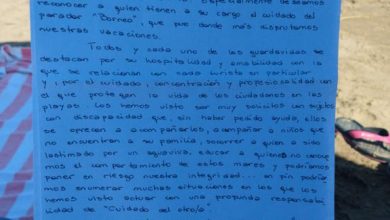 reconocer a quien tienen a su cargo el cuidado del
parador "Borneo", que fue donde más disfrutamos
nuestras vacaciones.
Todos y cada uno de los guardavidas se
destacan por su hospitalidad y amabilidad con la
que se relacionan con cada turista en particular
y, por el cuidado, concentración y profesionalidad con
el que protegen la vida de los ciudadanos en las
playas. Los hemos visto ser muy solícitos con sujetos
con discapacidad que, sin haber pedido ayuda, ellos
se ofrecen a acompañarlos, acompañar a niños que
no encuentran a su familia, socorrer a quien a sido
lastimado por un aguaviva, educar a quienes no conoce
mos el comportamiento de estos mares y podríamos
poner en riesgo nuestra integridad... en fin podría
mos enumerar muchas situaciones en los que los
hemos visto actuar con una profunda responsabi
lidad de "Cuidado del otro/a".